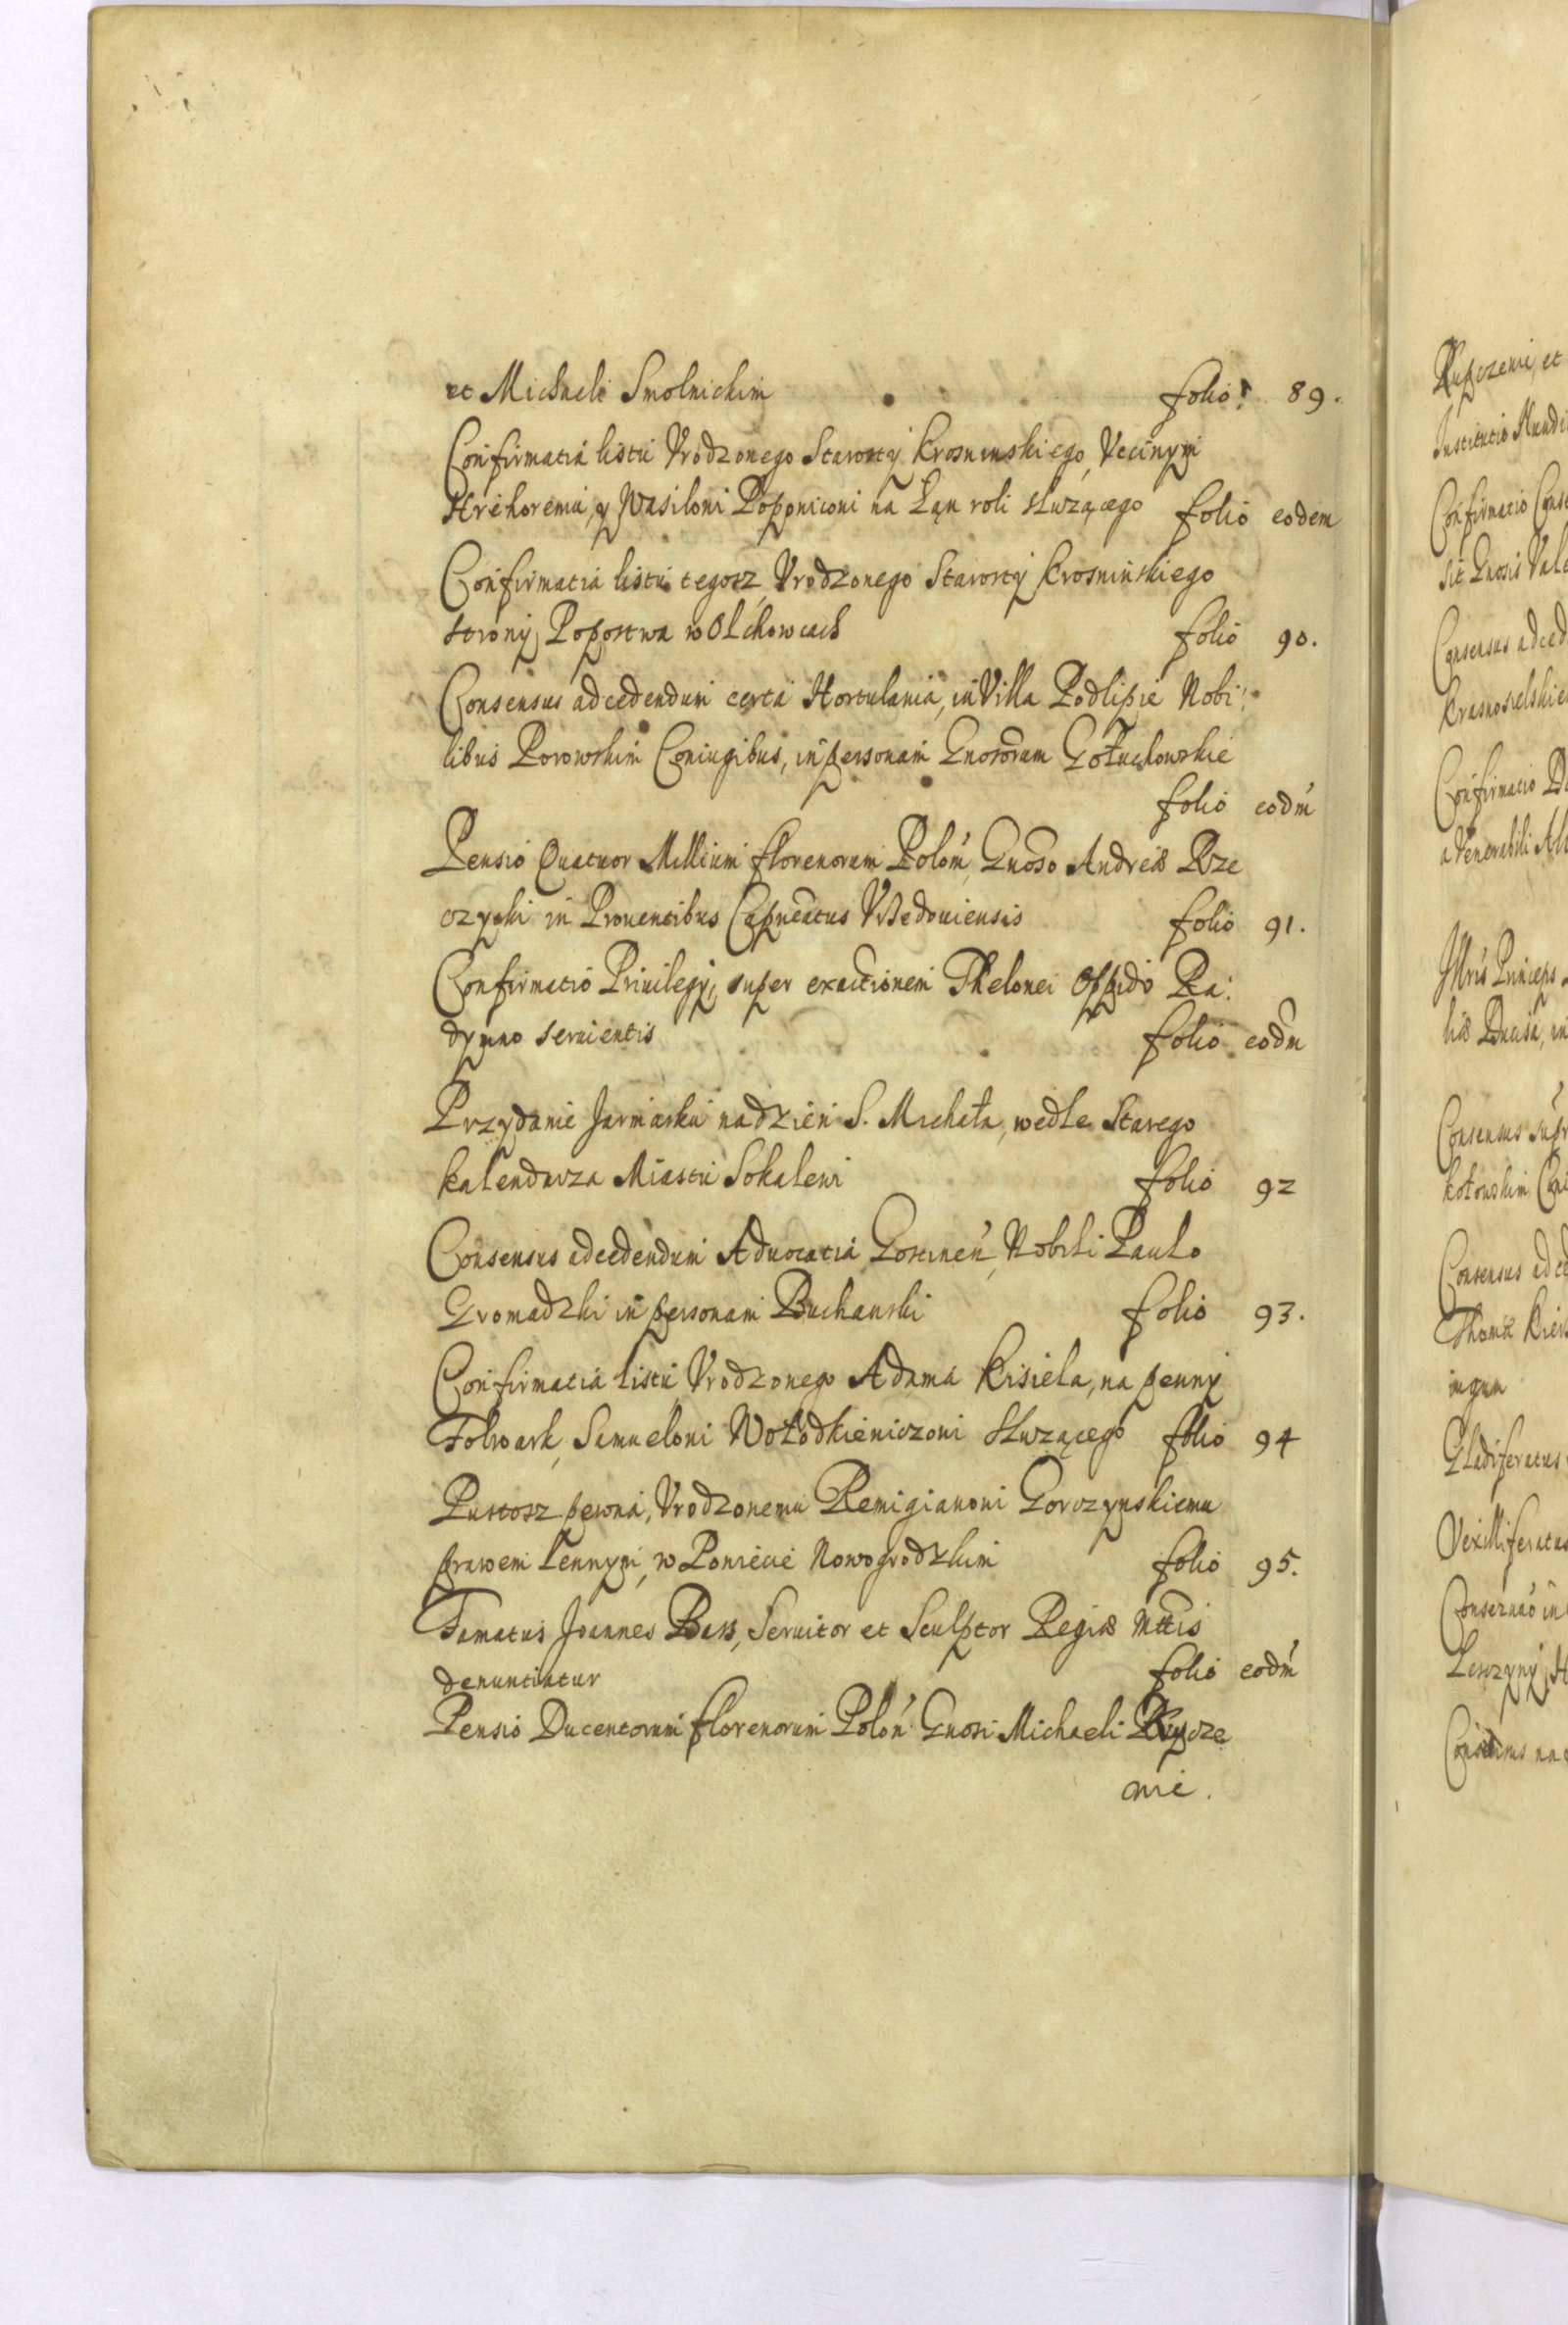 et Michaeli Smolnickim folio: 89.
Confirmatia listu Vrodzonego Starosty Krosninskiego, Vcciwym
Hrehoremu, y Wasiloni Poponiconi na Łąn roli służącego folio eodem
Confirmatia listu tegosz Vrodzonego Starosty Krosninskiego
strony Popostwa w Olchowcach folio 90.
Consensus ad cedendum certa Hortulania, in Villa Podlipie Nobi:
libus Porowskim Coniugibus, in personam Gnosorum Gołuchowskie
folio eodm
Pensio Quatuor Millium florenorum Polon, Gnoso Andreæ Rze
czycki in Prouentibus Capneatus Vrzedouiensis folio 91.
Confirmatio Priuilegij, super exactionem Thelonei Oppido Ra:
dymno seruientis folio eodm
Przydanie Jarmarku na dzien S. Michała, wedle Starego
kalendarza Miastu Sokalewi folio 92
Consensus ad cedendum Aduocatia Gostinen, Nobili Paulo
Gromadzki in personam Buchanski folio 93.
Confirmatia listu Vrodzonego Adama Kisiela, na pewny
Folwark, Samueloni Wołodkieniczoni służącego folio 94
Pustosz pewna, Vrodzonemu Remigianoni Gorczynskiemu
prawem lennym, w Powiecie Nowogrodzkim folio 95.
Famatus Joannes Bass, Seruitor et Sculptor Regiæ Mttis
denuntiatur folio eodm
Pensio Ducentorum florenorum Polon Gnosi Michaeli Rupcze
ni.
Rupczeni, et
Institutio
Confirmatio
Consensus ad ced
Confirmatio
a Venerabili
Princeps
Consensus
Consensus ad ce
Thomæ
Gladiferatus
Vexilliferatus